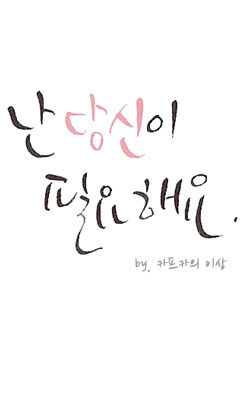 난 당신이
필요해요.
by. 카프카의 이상